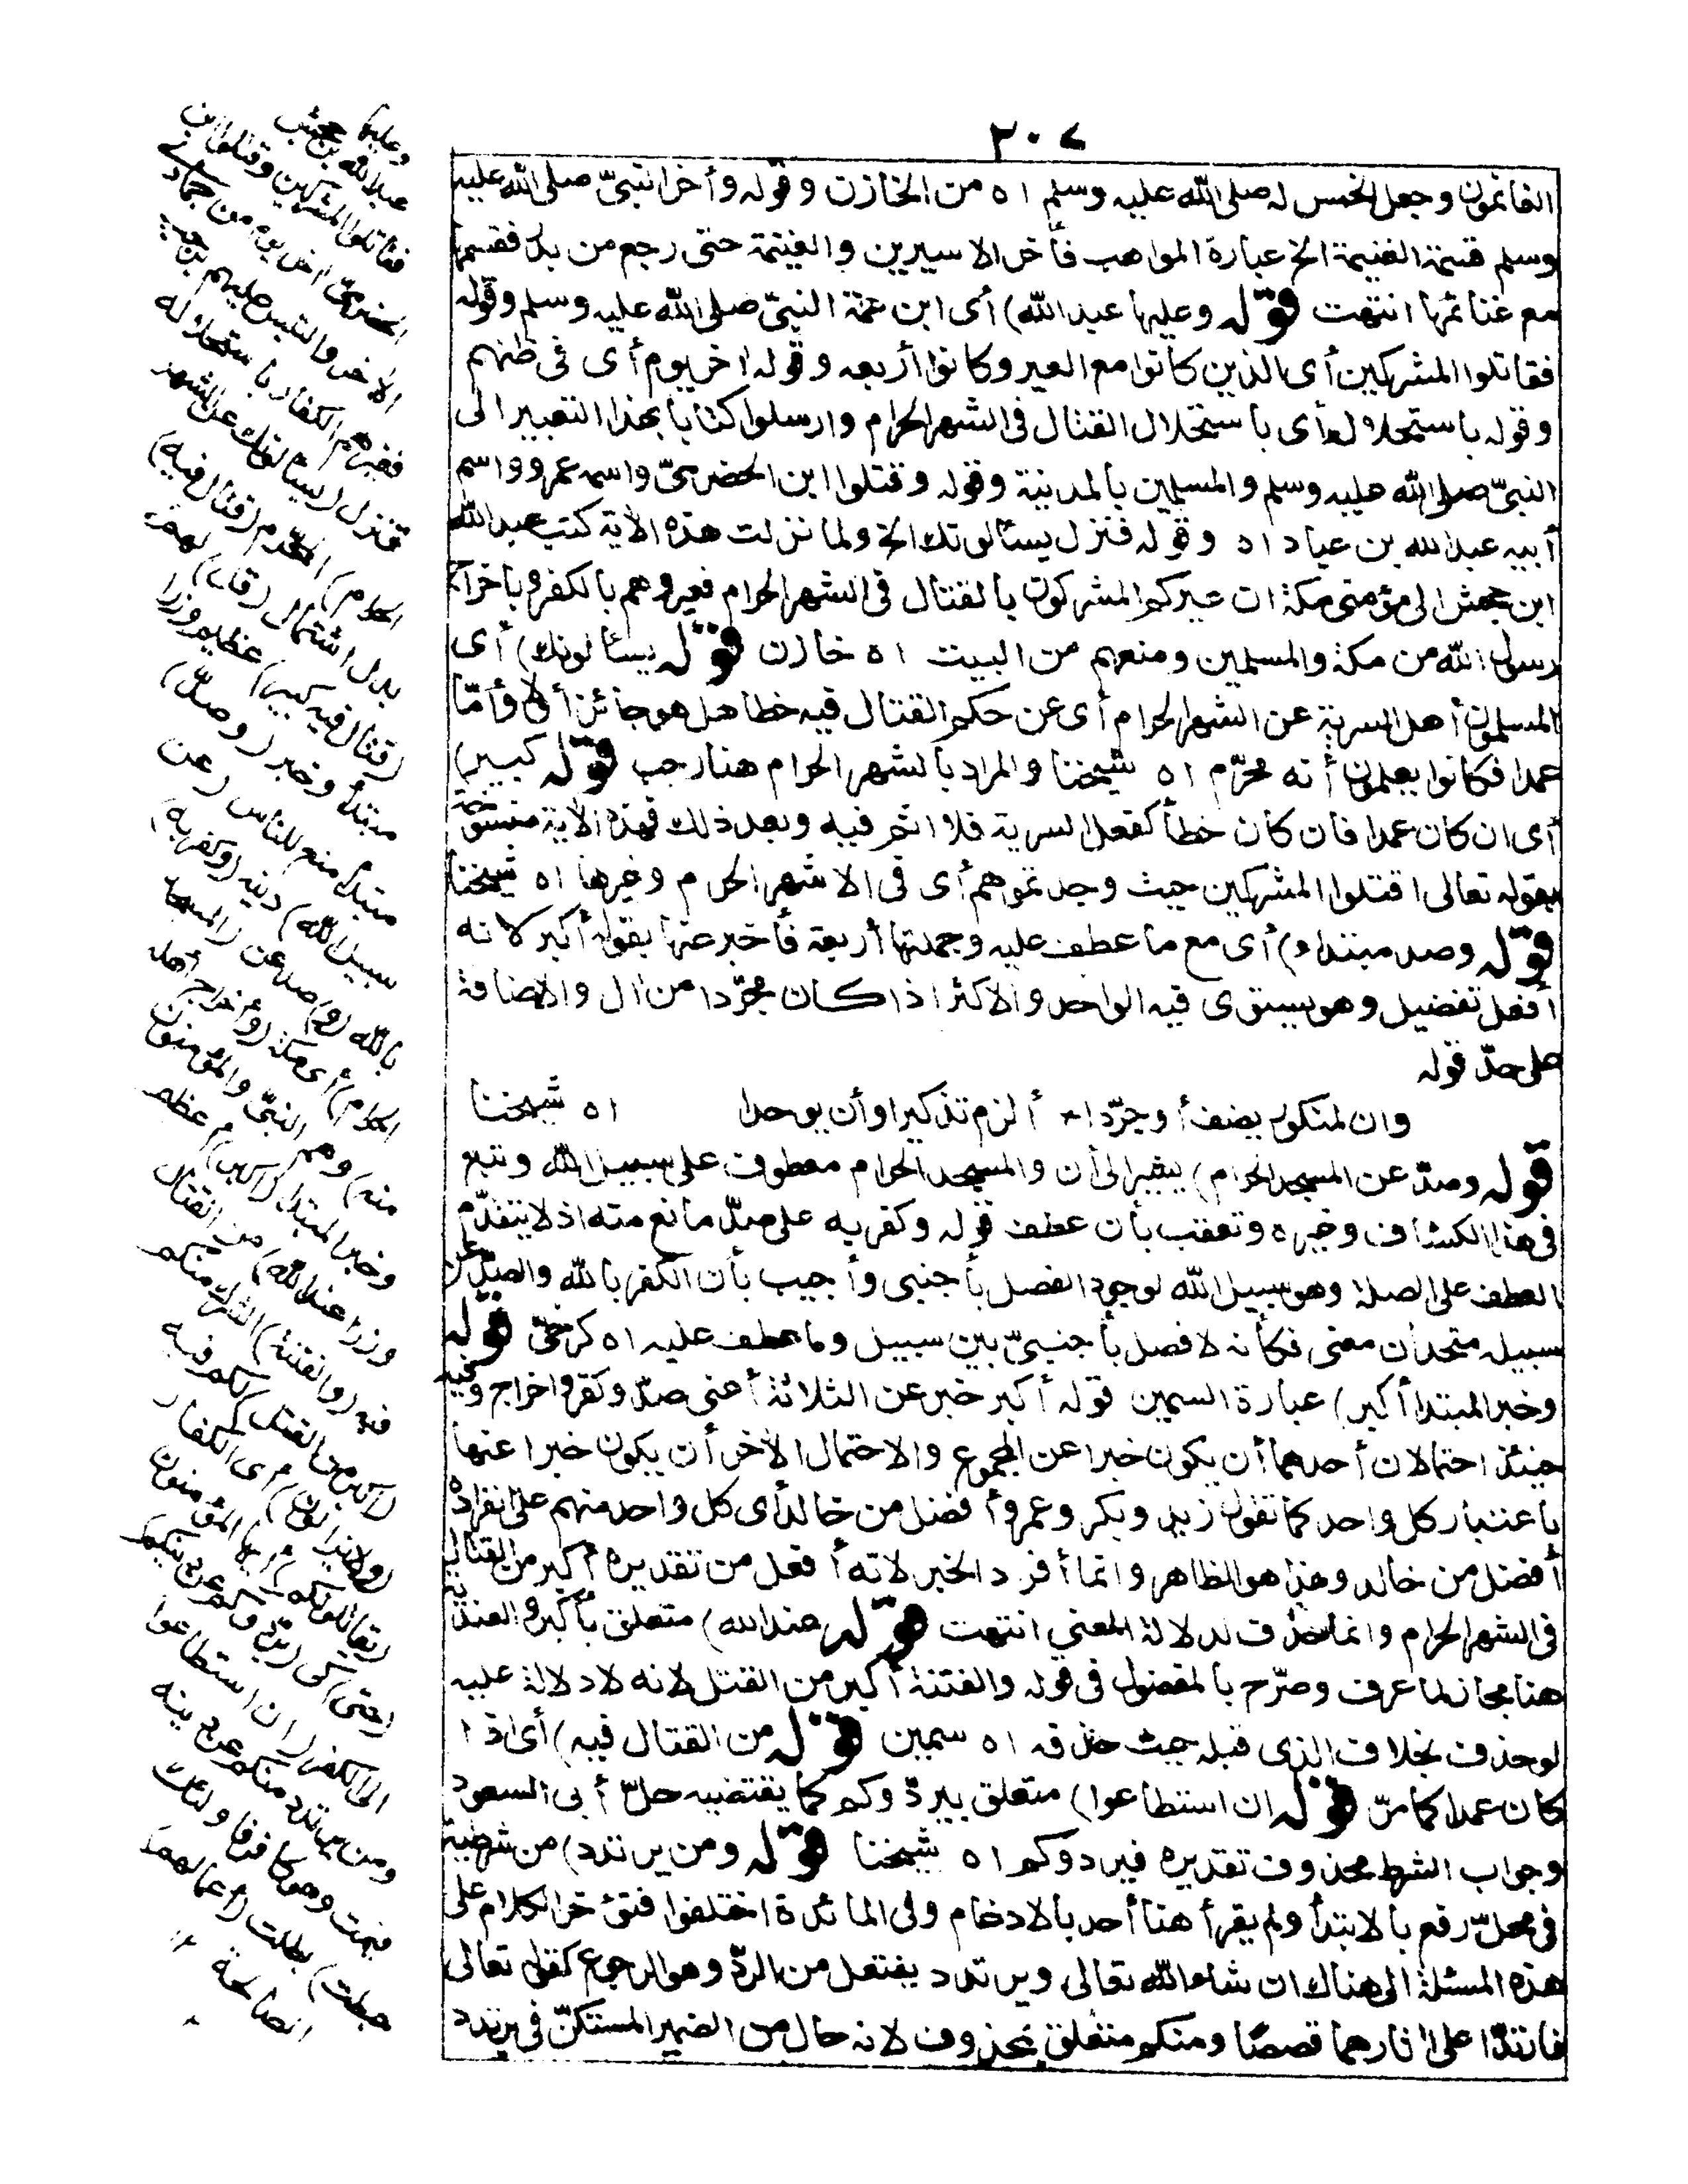 ٢٠٧
الغانمون وجعل الخمس له صلى الله عليه وسلم اه من الخازن وقوله وأخر النبيّ صلى الله عليه
وسلم قسمة الغنيمة الخ عبارة المواهب فأخر الاسيرين والغنيمة حتى رجع من بدر فقسمها
مع غنائمها انتهت قوله وعليها عبد الله) أى ابن عمة النبيّ صلى الله عليه وسلم وقوله
فقاتلوا المشركين أى الذين كانوا مع العير وكانوا أربعه وقوله اخر يوم أى فى ظنهم
وقوله باستحلاله أى باستحلال القتال فى الشهر الحرام وارسلوا كتابا بهذا التعبير الى
النبيّ صلى الله عليه وسلم والمسلمين بالمدينة وقوله وقتلوا ابن الحضرميّ واسمه عمرو واسم
أبيه عبد الله بن عباد اه وقوله فنزل يسئالونك الخ ولما نزلت هذه الأية كتب عبد الله
ابن جحش الى مؤمنى مكة ان عيركم المشركون بالقتال فى الشهر الحرام فعيروهم بالكفر وباخراج
رسول الله من مكة والمسلمين ومنعهم من البيت اه خازن قوله يسئالونك) أى
المسلمون أهل السرية عن الشهر الحرام أى عن حكم القتال فيه خطا هل هو جائز أولا وأمّا
عمدا فكانوا يعلمون أنه محرّم اه شيخنا والمراد بالشهر الحرام هنا رجب قوله كبير)
أى ان كان عمدا فان كان خطأ كفعل السرية فلا اثم فيه وبعد ذلك فهذه الأية منسوخة
بقوله تعالى اقتلوا المشركين حيث وجدتموهم أى فى الاشهر الحرم وغيرها اه شيخنا
قوله وصد مبتداء) أى مع ما عطف عليه وجملتها أربعة فأخبر عنها بقوله أكبر لانه
أفعل تفضيل وهو يستوى فيه الواحد والاكثر اذا كان مجرّدا من ال والاضافة
على حدّ قوله
وان لمنكور يضف أو جرّدا * ألزم تذكيرا وأن يوحدا اه شيخنا
قوله وصدّ عن المسجد الحرام) يشير الى أن والمسجد الحرام معطوف على سبيل الله وتبع
فى هذا الكشاف وغيره وتعقب بأن عطف قوله وكفر به على صدّ مانع منه اذ لا يتقدّم
العطف على الصلة وهو سبيل الله لوجود الفصل بأجنبى وأجيب بأن الكفر بالله والصدّ عن
سبيله متحدان معنى فكأنه لا فصل بأجنبىّ بين سبيل وما عطف عليه اه كرخىّ قوله
وخبر المبتدا أكبر) عبارة السمين قوله أكبر خبر عن الثلاثة أعنى صدّ وكفر واخراج وفيه
حينئذ احتمالان أحدهما أن يكون خبرا عن المجموع والاحتمال الأخر أن يكون خبرا عنها
باعتبار كل واحد كما تقول زيد وبكر وعمرو أفضل من خالد أى كل واحد منهم على انفراده
أفضل من خالد وهذا هو الظاهر وانما أفرد الخبر لانه أفعل من تقديره أكبر من القتال
فى الشهر الحرام وانما حذف لدلالة المعنى انتهت قوله عند الله) متعلق بأكبر والعندية
هنا مجاز لما عرف وصرّح بالمفضول فى قوله والفتنة أكبر من القتل لانه لا دلالة عليه
لو حذف بخلاف الذى قبله حيث حذف اه سمين قوله من القتال فيه) أى اذا
كان عمدا كما مرّ قوله ان استطاعوا) متعلق بيردّوكم كما يقتضيه حلّ أبى السعود
وجواب الشرط محذوف تقديره فيردوكم اه شيخنا قوله ومن يرتدد) من شرطية
فى محلّ رفع بالابتدأ ولم يقرأ هنا أحد بالادغام وفى المائدة اختلفوا فنؤخر الكلام على
هذه المسئلة الى هناك ان شاء الله تعالى ويرتدد يفتعل من الردّ وهو الرجوع كقوله تعالى
فارتدّا على أثارهما قصصًا ومنكم متعلق بمحذوف لانه حال من الضمير المستكنّ فى يرتدد
وعليها
عبد الله بن جحش
فقاتلوا المشركين وقتلوا ابن
الحضرميّ اخر يوم من جمادى
الأخر والتبس عليهم برجب
فعيرهم الكفار باستحلاله
فنزل (يسئالونك عن الشهر
الحرام) المحرّم (قتال فيه)
بدل اشتمال (قل) لهم
(قتال فيه كبير) عظيم وزرا
مبتدأ وخبر (وصدّ)
مبتدأ منع للناس (عن
سبيل الله) دينه (وكفر به)
بالله (و) صد عن (المسجد
الحرام) أى مكة (واخراج أهله
منه) وهم النبيّ والمؤمنون
وخبر المبتدا (أكبر) أعظم
وزرا (عند الله) من القتال
فيه (والفتنة) الشرك منكم
(أكبر من القتل) لكم فيه
(ولا يزالون) أى الكفار
(يقاتلونكم) أيها المؤمنون
(حتى) كى (يردّوكم عن دينكم)
الى الكفر (ان استطاعوا
ومن يرتدد منكم عن دينه
فيمت وهو كافر فاولئك
حبطت) بطلت (أعمالهم)
الصالحة